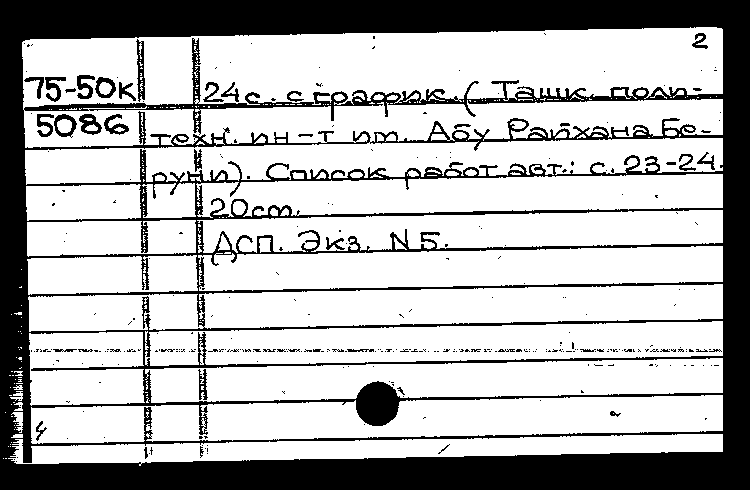 2
75-50к 24с. с график. (Ташк. поли-
5086 техн. ин-т им. Абу Райхана Бе-
руни). Список работ авт.: с. 23-24.
20см.
ДСП. Экз. N 5.
4